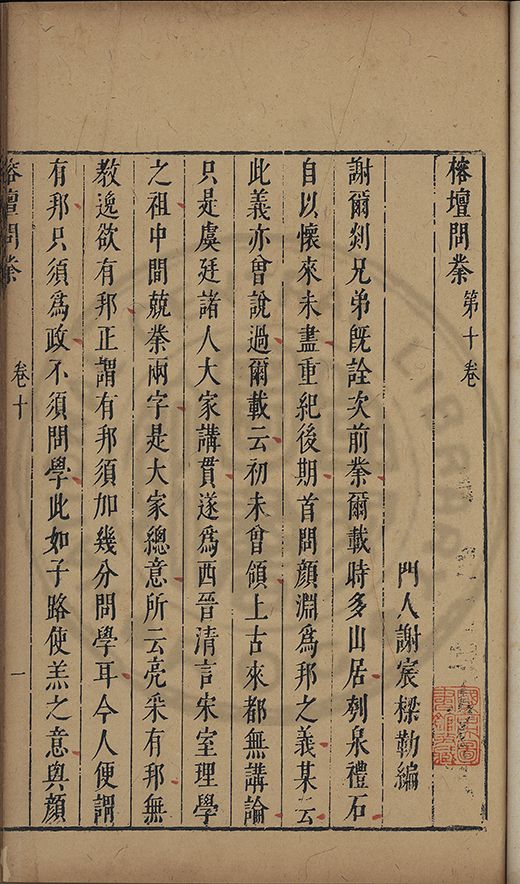 榕壇問業 第十卷
門人謝宸樑勒編
謝爾剡兄弟既詮次前業爾載時多山居剡泉禮石
自以懷來未盡重紀後期首問顏淵為邦之義某云
此義亦曾說過爾載云初未曾領上古來都無講論
只是虞廷諸人大家講貫遂為西晉清言宋室理學
之祖中間兢業兩字是大家總意所云亮采有邦無
教逸欲有邦正謂有邦須加幾分問學耳今人便謂
有邦只須為政不須問學此如子路使羔之意與顏
榕壇問業 卷十 一